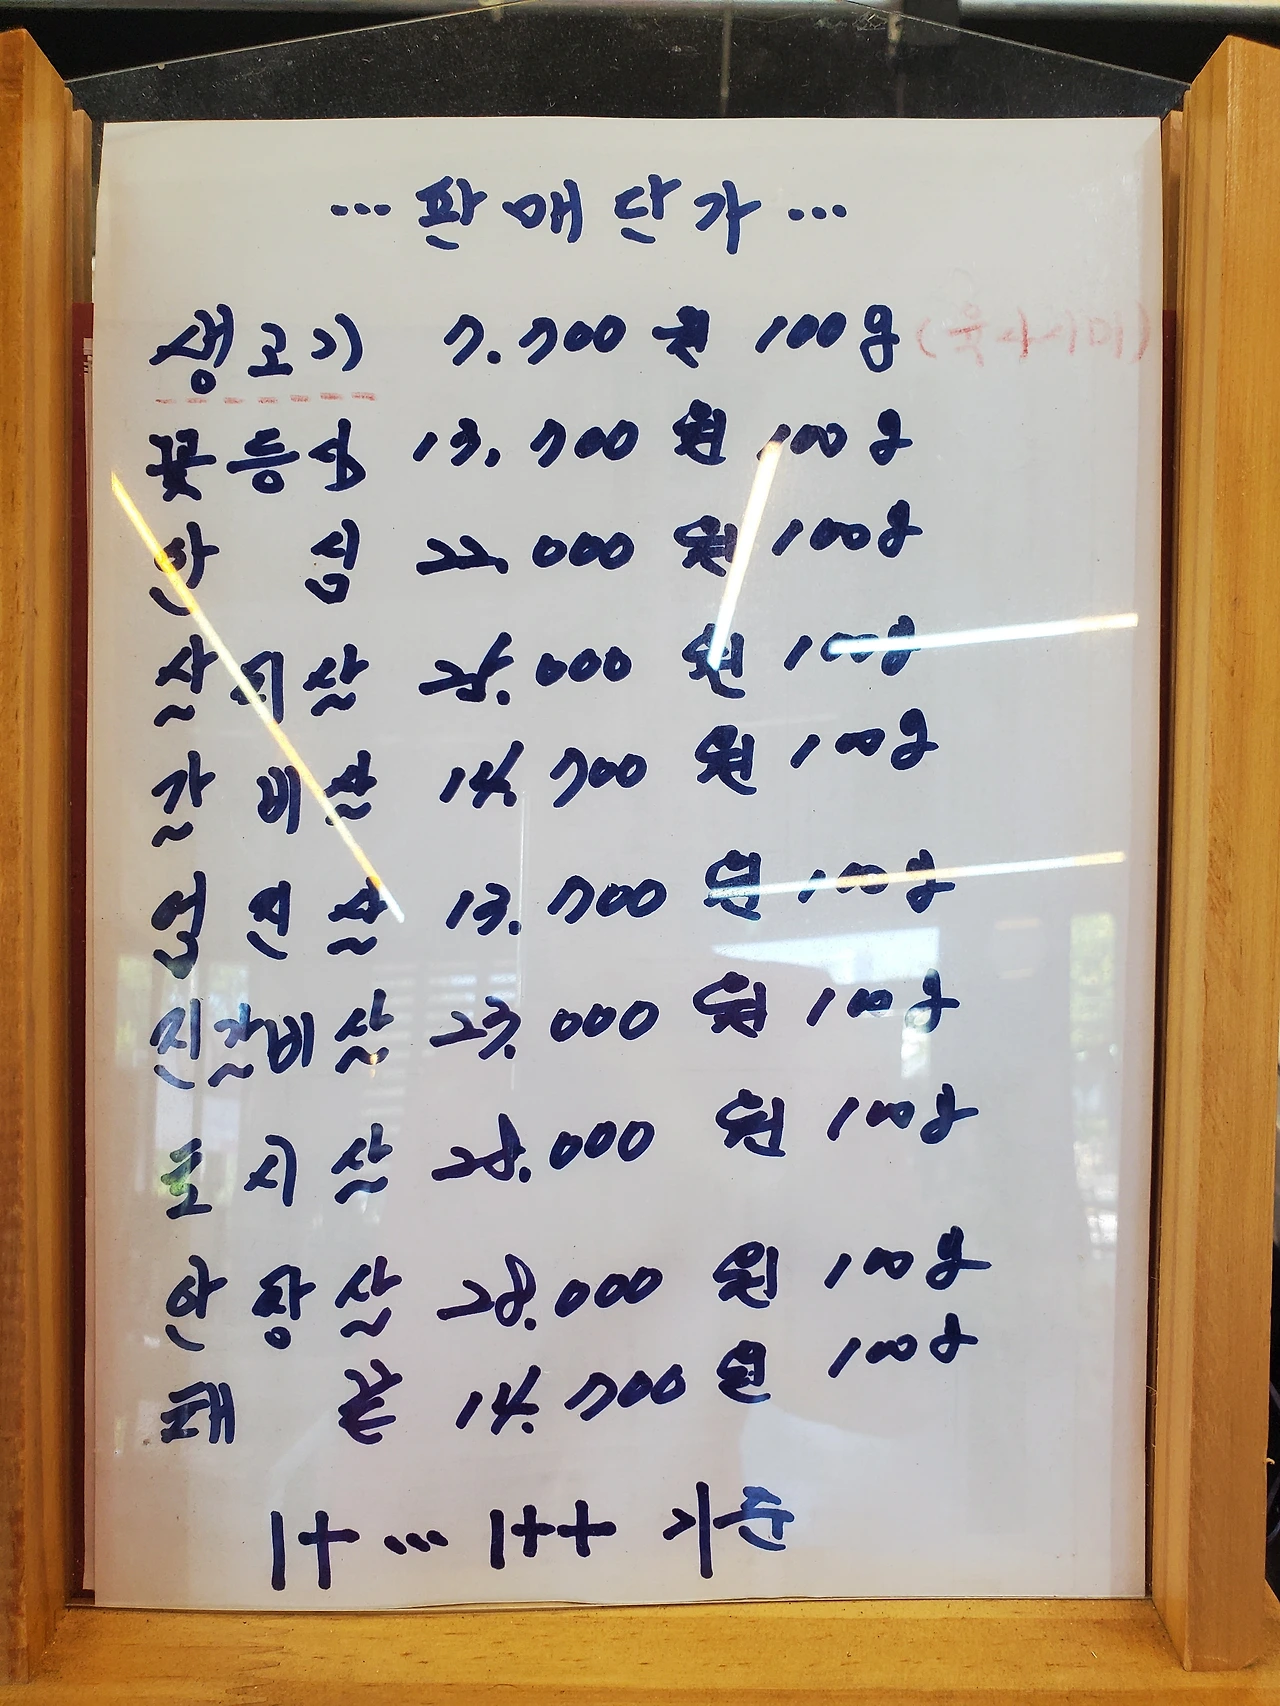 ... 판매단가 ...
생고기 7.700 원 100g (육사시미)
꽃등심 13.700 원 100g
안심 22.000 원 100g
살치살 25.000 원 100g
갈비살 14.700 원 100g
업진살 13.700 원 100g
진갈비살 23.000 원 100g
토시살 28.000 원 100g
안창살 28.000 원 100g
채끝 14.700 원 100g
1+ ... 1++ 기준